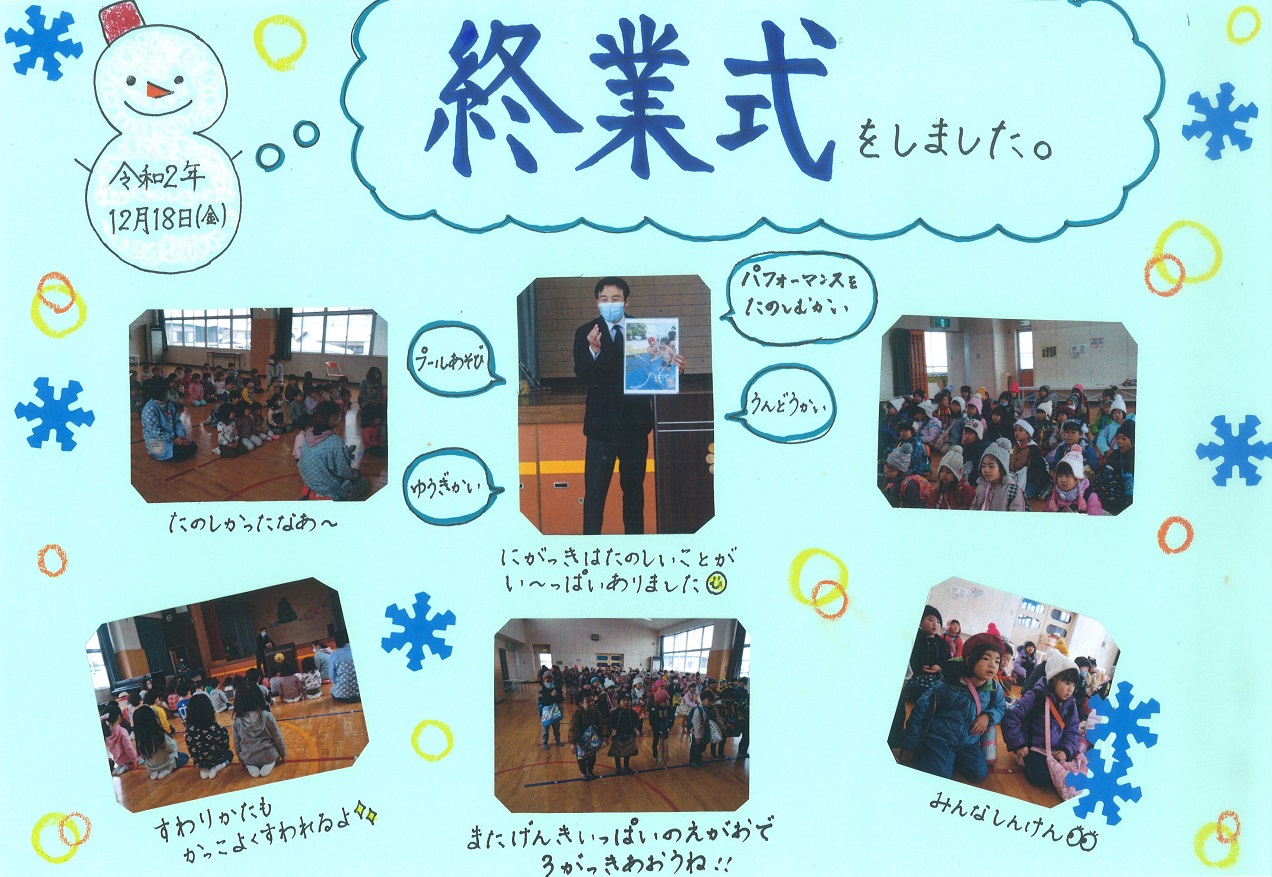 終業式をしました。
令和2年
12月18日(金)
パフォーマンスを
たのしむかい
プールあそび
うんどうかい
ゆうぎかい
たのしかったなあ～
にがっきはたのしいことが
い～っぱいありました
すわりかたも
かっこよくすわれるよ
またげんきいっぱいのえがおで
3がっきあおうね!!
みんなしんけん